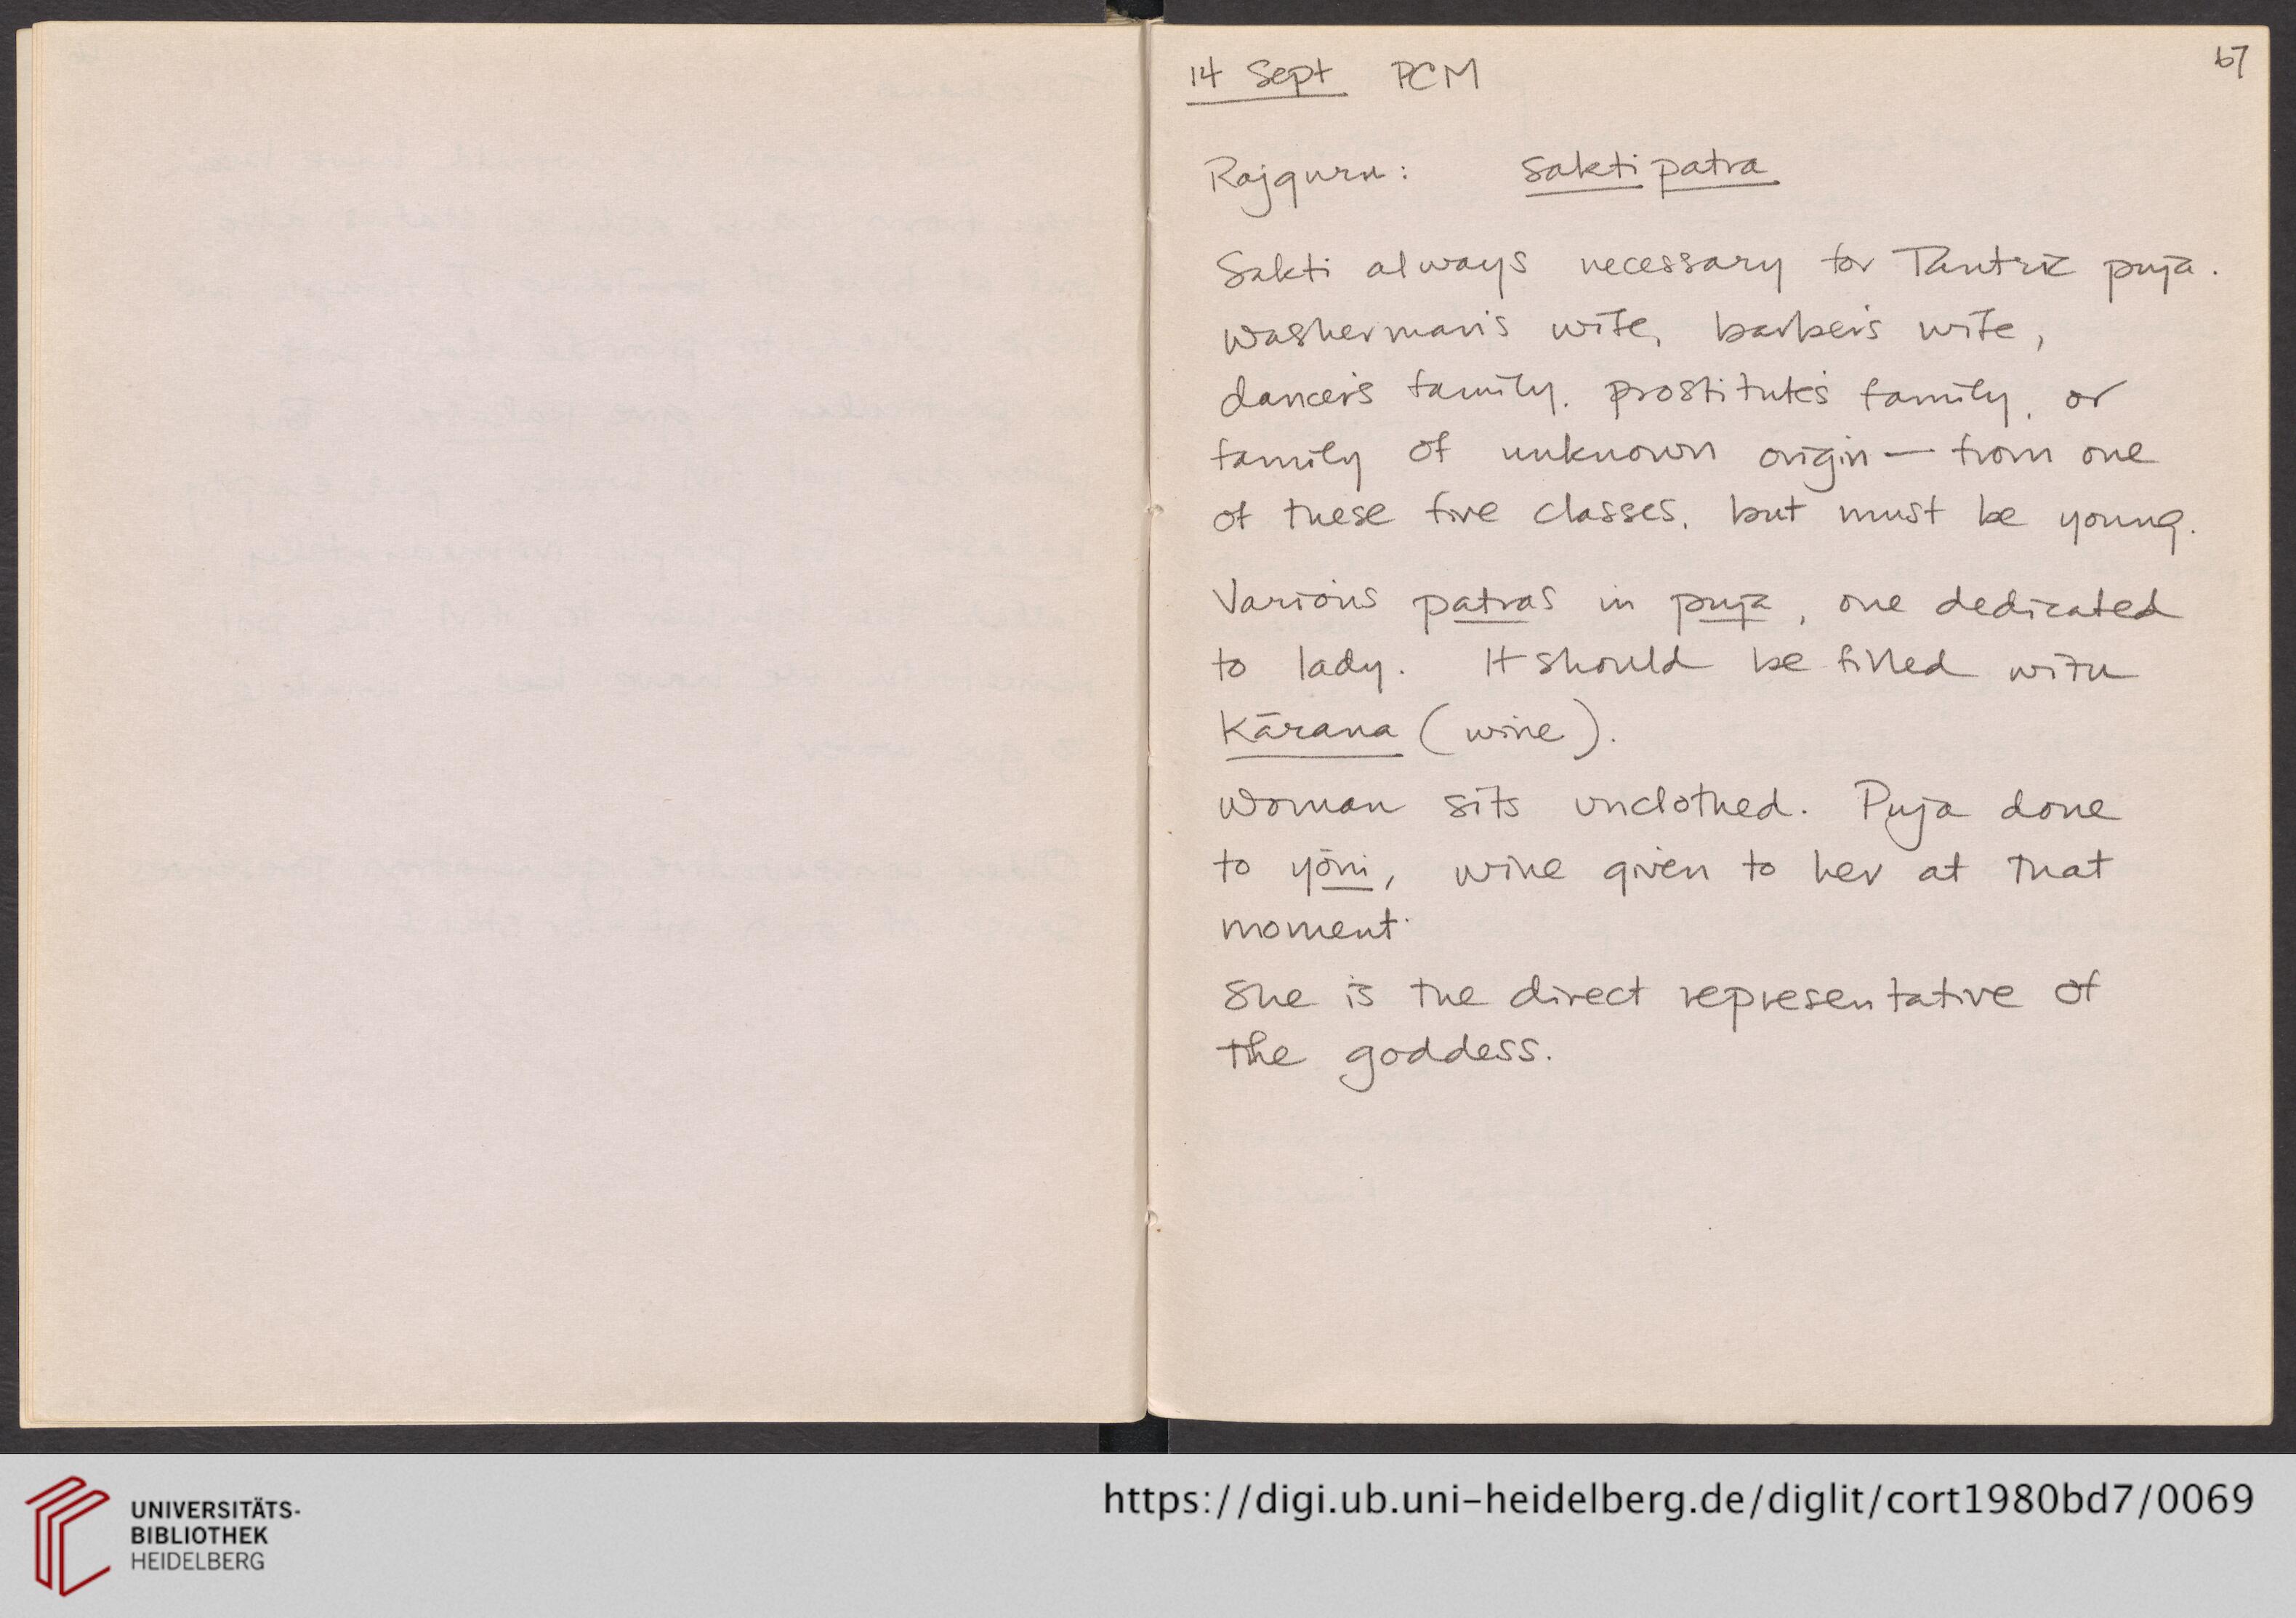 67
14 Sept PCM
Rajguru: Sakti patra
Sakti always necessary for Tantric puja.
Washerman's wife, barber's wife,
dancer's family, prostitute's family, or
family of unknown origin — from one
of these five classes, but must be young.
Various patras in puja, one dedicated
to lady. It should be filled with
Kārana (wine).
Woman sits unclothed. Puja done
to yōni, wine given to her at that
moment.
She is the direct representative of
the goddess.
UNIVERSITÄTS-
BIBLIOTHEK
HEIDELBERG
https://digi.ub.uni-heidelberg.de/diglit/cort1980bd7/0069